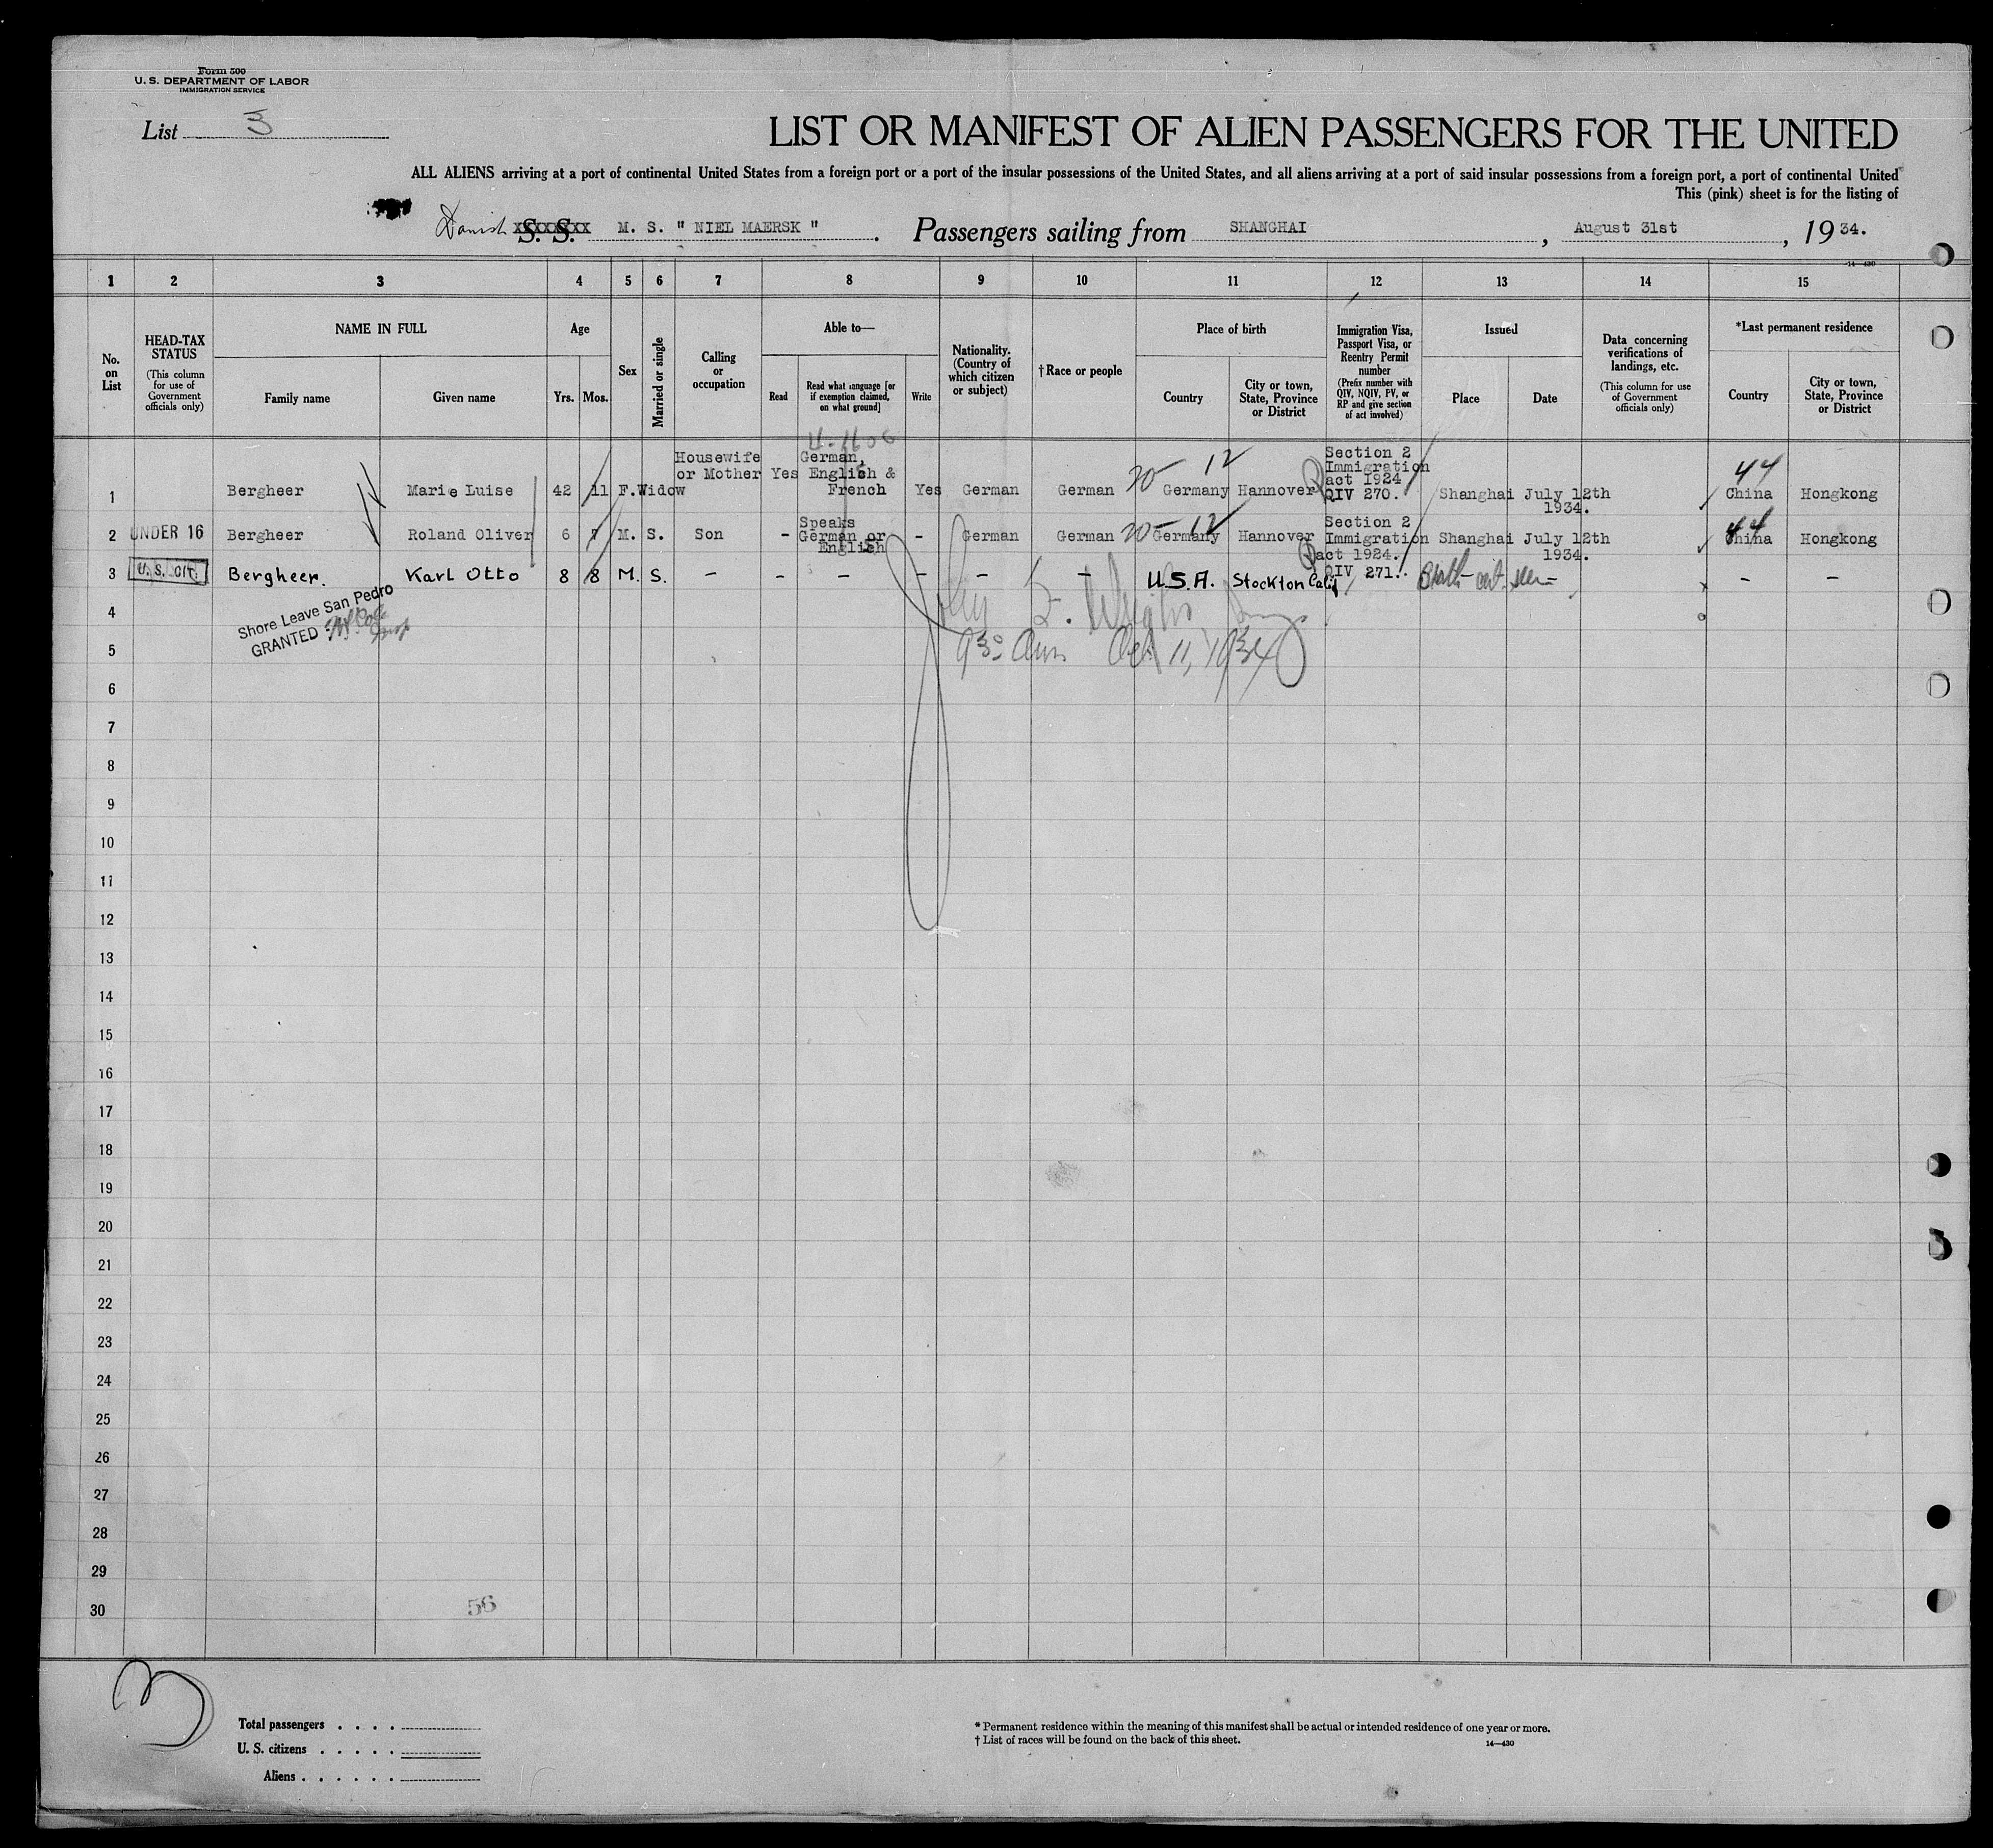 Form 500
U. S. DEPARTMENT OF LABOR
IMMIGRATION SERVICE
List 3
LIST OR MANIFEST OF ALIEN PASSENGERS FOR THE UNITED
ALL ALIENS arriving at a port of continental United States from a foreign port or a port of the insular possessions of the United States, and all aliens arriving at a port of said insular possessions from a foreign port, a port of continental United
This (pink) sheet is for the listing of
Danish S. S. M. S. " NIEL MAERSK ". Passengers sailing from SHANGHAI, August 31st, 1934.
14—430
1 2 3 4 5 6 7 8 9 10 11 12 13 14 15
No. on List
HEAD-TAX STATUS
(This column for use of Government officials only)
NAME IN FULL
Family name
Given name
Age
Yrs.
Mos.
Sex
Married or single
Calling or occupation
Able to—
Read
Read what language [or if exemption claimed, on what ground]
Write
Nationality. (Country of which citizen or subject)
†Race or people
Place of birth
Country
City or town, State, Province or District
Immigration Visa, Passport Visa, or Reentry Permit number
(Prefix number with QIV, NQIV, PV, or RP and give section of act involved)
Issued
Place
Date
Data concerning verifications of landings, etc.
(This column for use of Government officials only)
*Last permanent residence
Country
City or town, State, Province or District
1 Bergheer Marie Luise 42 11 F. Widow Housewife or Mother Yes German, English & French Yes German German 20-12 Germany Hannover Section 2 Immigration act 1924 QIV 270. Shanghai July 12th 1934. 44 China Hongkong
2 UNDER 16 Bergheer Roland Oliver 6 7 M. S. Son - Speaks German or English - German German 20-12 Germany Hannover Section 2 Immigration act 1924. QIV 271. Shanghai July 12th 1934. 44 China Hongkong
3 U. S. CIT. Bergheer. Karl Otto 8 8 M. S. - - - - - - U.S.A. Stockton Calif Birth cert. seen - -
4
Shore Leave San Pedro
GRANTED
5
9 30 Am Oct 11, 1934
6
7
8
9
10
11
12
13
14
15
16
17
18
19
20
21
22
23
24
25
26
27
28
29
30
56
3
Total passengers . . . .
U. S. citizens . . . . .
Aliens . . . . . .
* Permanent residence within the meaning of this manifest shall be actual or intended residence of one year or more.
† List of races will be found on the back of this sheet.
14—430